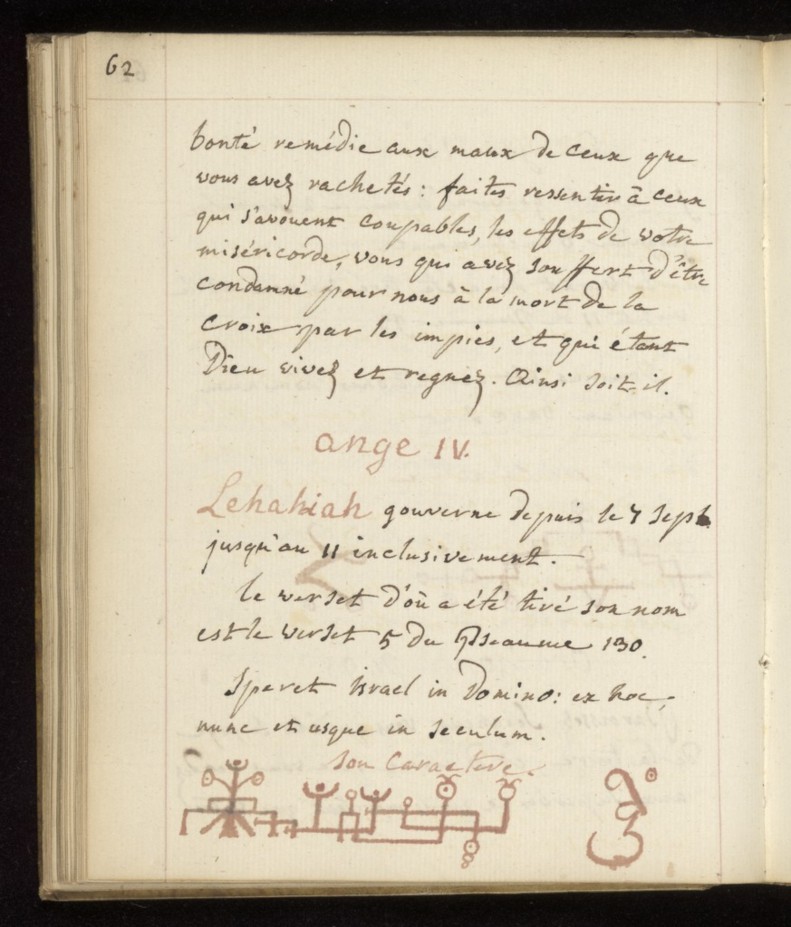 62
bonté remédie aux maux de ceux que
vous avez rachetés : faites ressentir à ceux
qui s'avouent coupables, les effets de votre
miséricorde, vous qui avez souffert d'être
condamné pour nous à la mort de la
croix par les impies, et qui étant
Dieu vivez et regnez. Ainsi soit-il.
ange IV.
Lehahiah gouverne depuis le 7 Sept.
jusqu'au 11 inclusivement.
le verset d'où a été tiré son nom
est le verset 5 du Pseaume 130.
Speret israel in Domino: ex hoc,
nunc et usque in seculum.
Son Caractere.